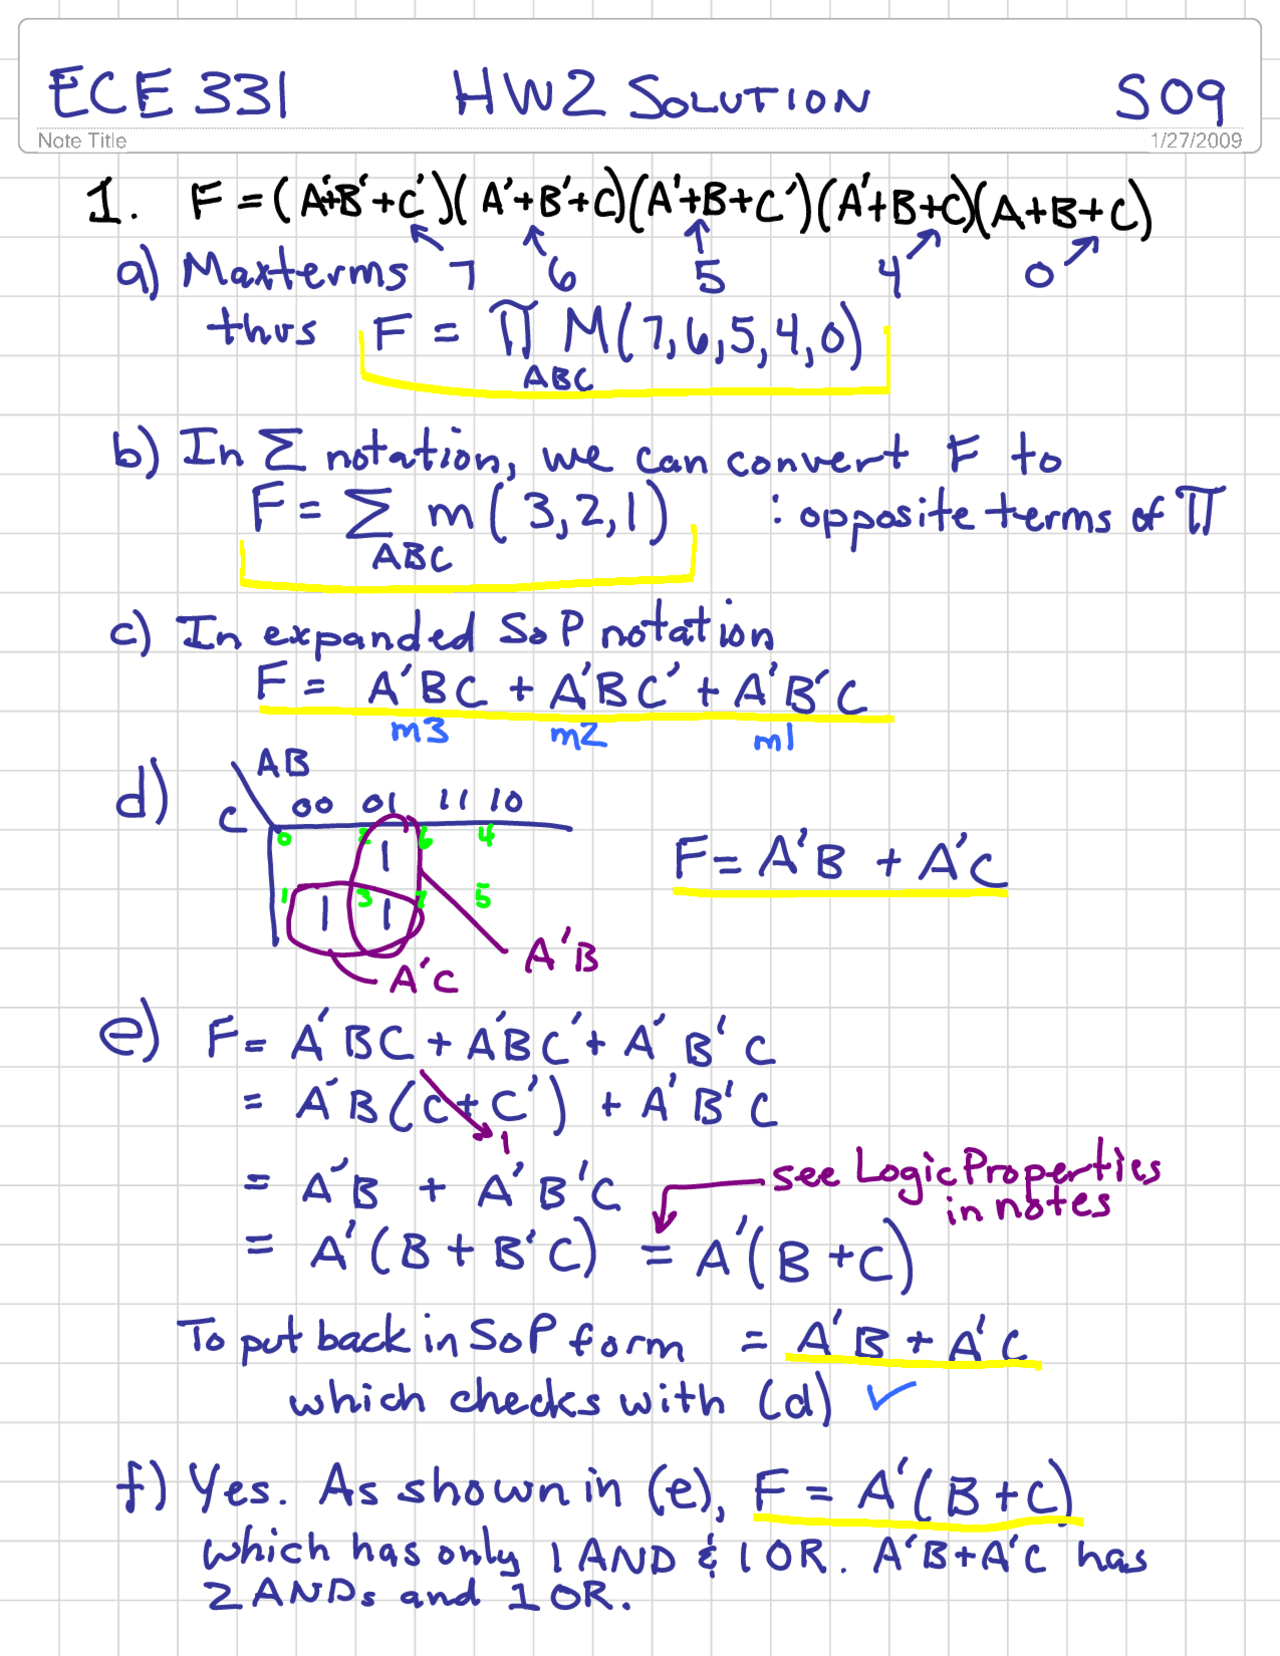 ECE 331 HW2 SOLUTION S09
Note Title 1/27/2009
1. F = (A'+B'+C')(A'+B'+C)(A'+B+C')(A'+B+C)(A+B+C)
a) Maxterms 7 6 5 4 0
thus F = ∏ M(7,6,5,4,0)
ABC
b) In Σ notation, we can convert F to
F = Σ m(3,2,1) : opposite terms of ∏
ABC
c) In expanded SoP notation
F = A'BC + A'BC' + A'B'C
m3 m2 m1
d) AB
C 00 01 11 10
0 2 6 4
1
F = A'B + A'C
1 3 7 5
1 1
A'B
A'C
e) F = A'BC + A'BC' + A'B'C
= A'B(C+C') + A'B'C
1
= A'B + A'B'C
see Logic Properties
in notes
= A'(B + B'C) = A'(B+C)
To put back in SoP form = A'B + A'C
which checks with (d) ✓
f) Yes. As shown in (e), F = A'(B+C)
which has only 1 AND & 1 OR. A'B+A'C has
2 ANDs and 1 OR.